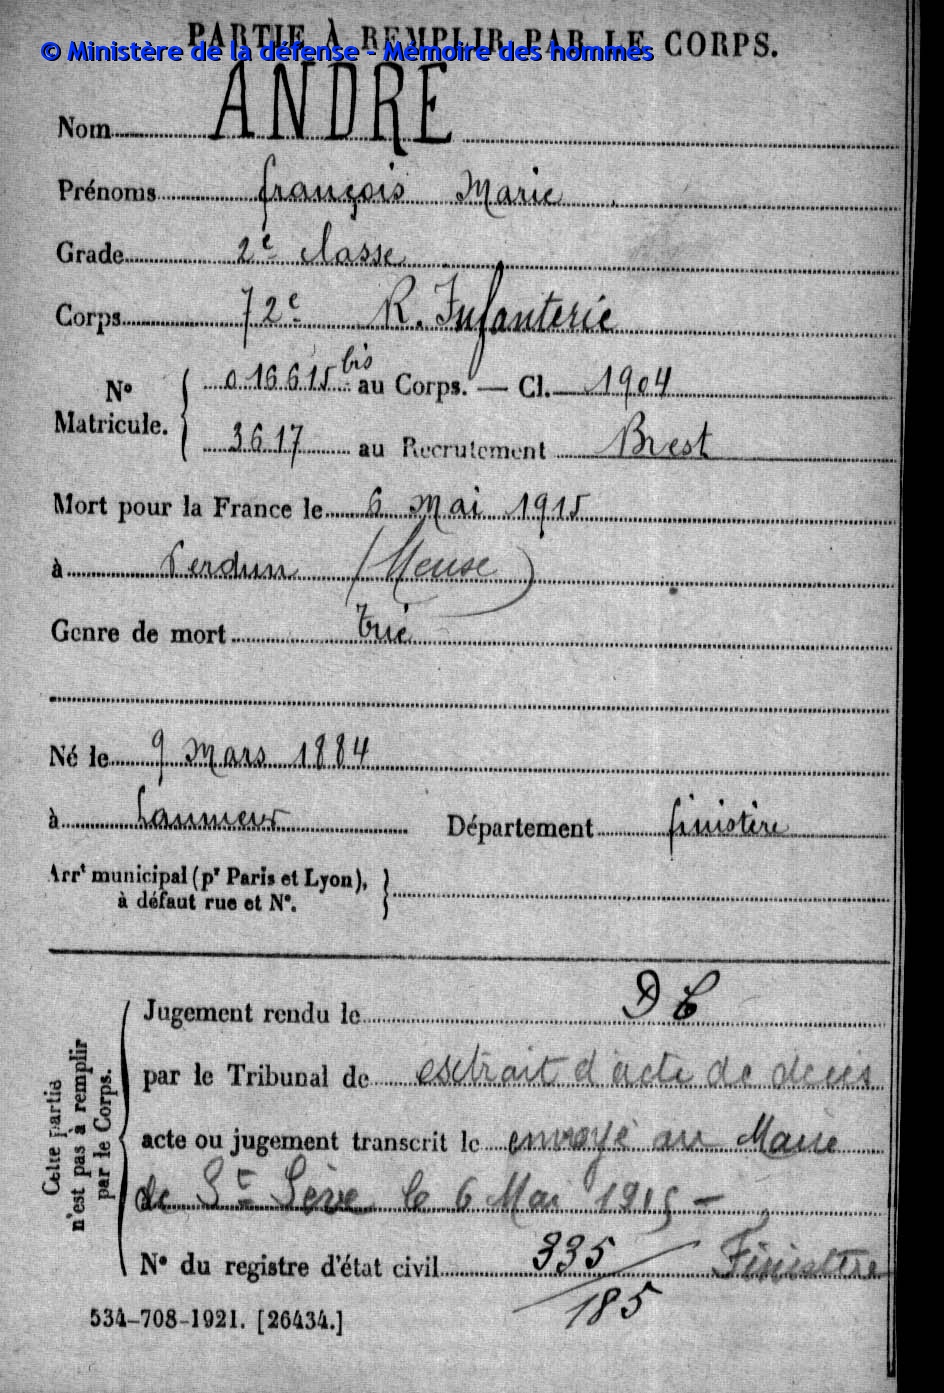 PARTIE À REMPLIR PAR LE CORPS.
© Ministère de la défense - Mémoire des hommes
Nom ANDRE
Prénoms françois Marie
Grade 2e classe
Corps 72e R. Infanterie
No Matricule. { 016615 bis au Corps. — Cl. 1904
3617 au Recrutement Brest
Mort pour la France le 6 Mai 1915
à Verdun (Meuse)
Genre de mort Tué
Né le 9 Mars 1884
à Lanmeur Département finistère
Arrt municipal (pr Paris et Lyon),
à défaut rue et No. }
Cette partie n'est pas à remplir par le Corps.
Jugement rendu le DC
par le Tribunal de extrait d'acte de décès
acte ou jugement transcrit le envoyé au Maire
de St Sève le 6 Mai 1915 —
No du registre d'état civil 335/185 Finistère
534-708-1921. [26434.]